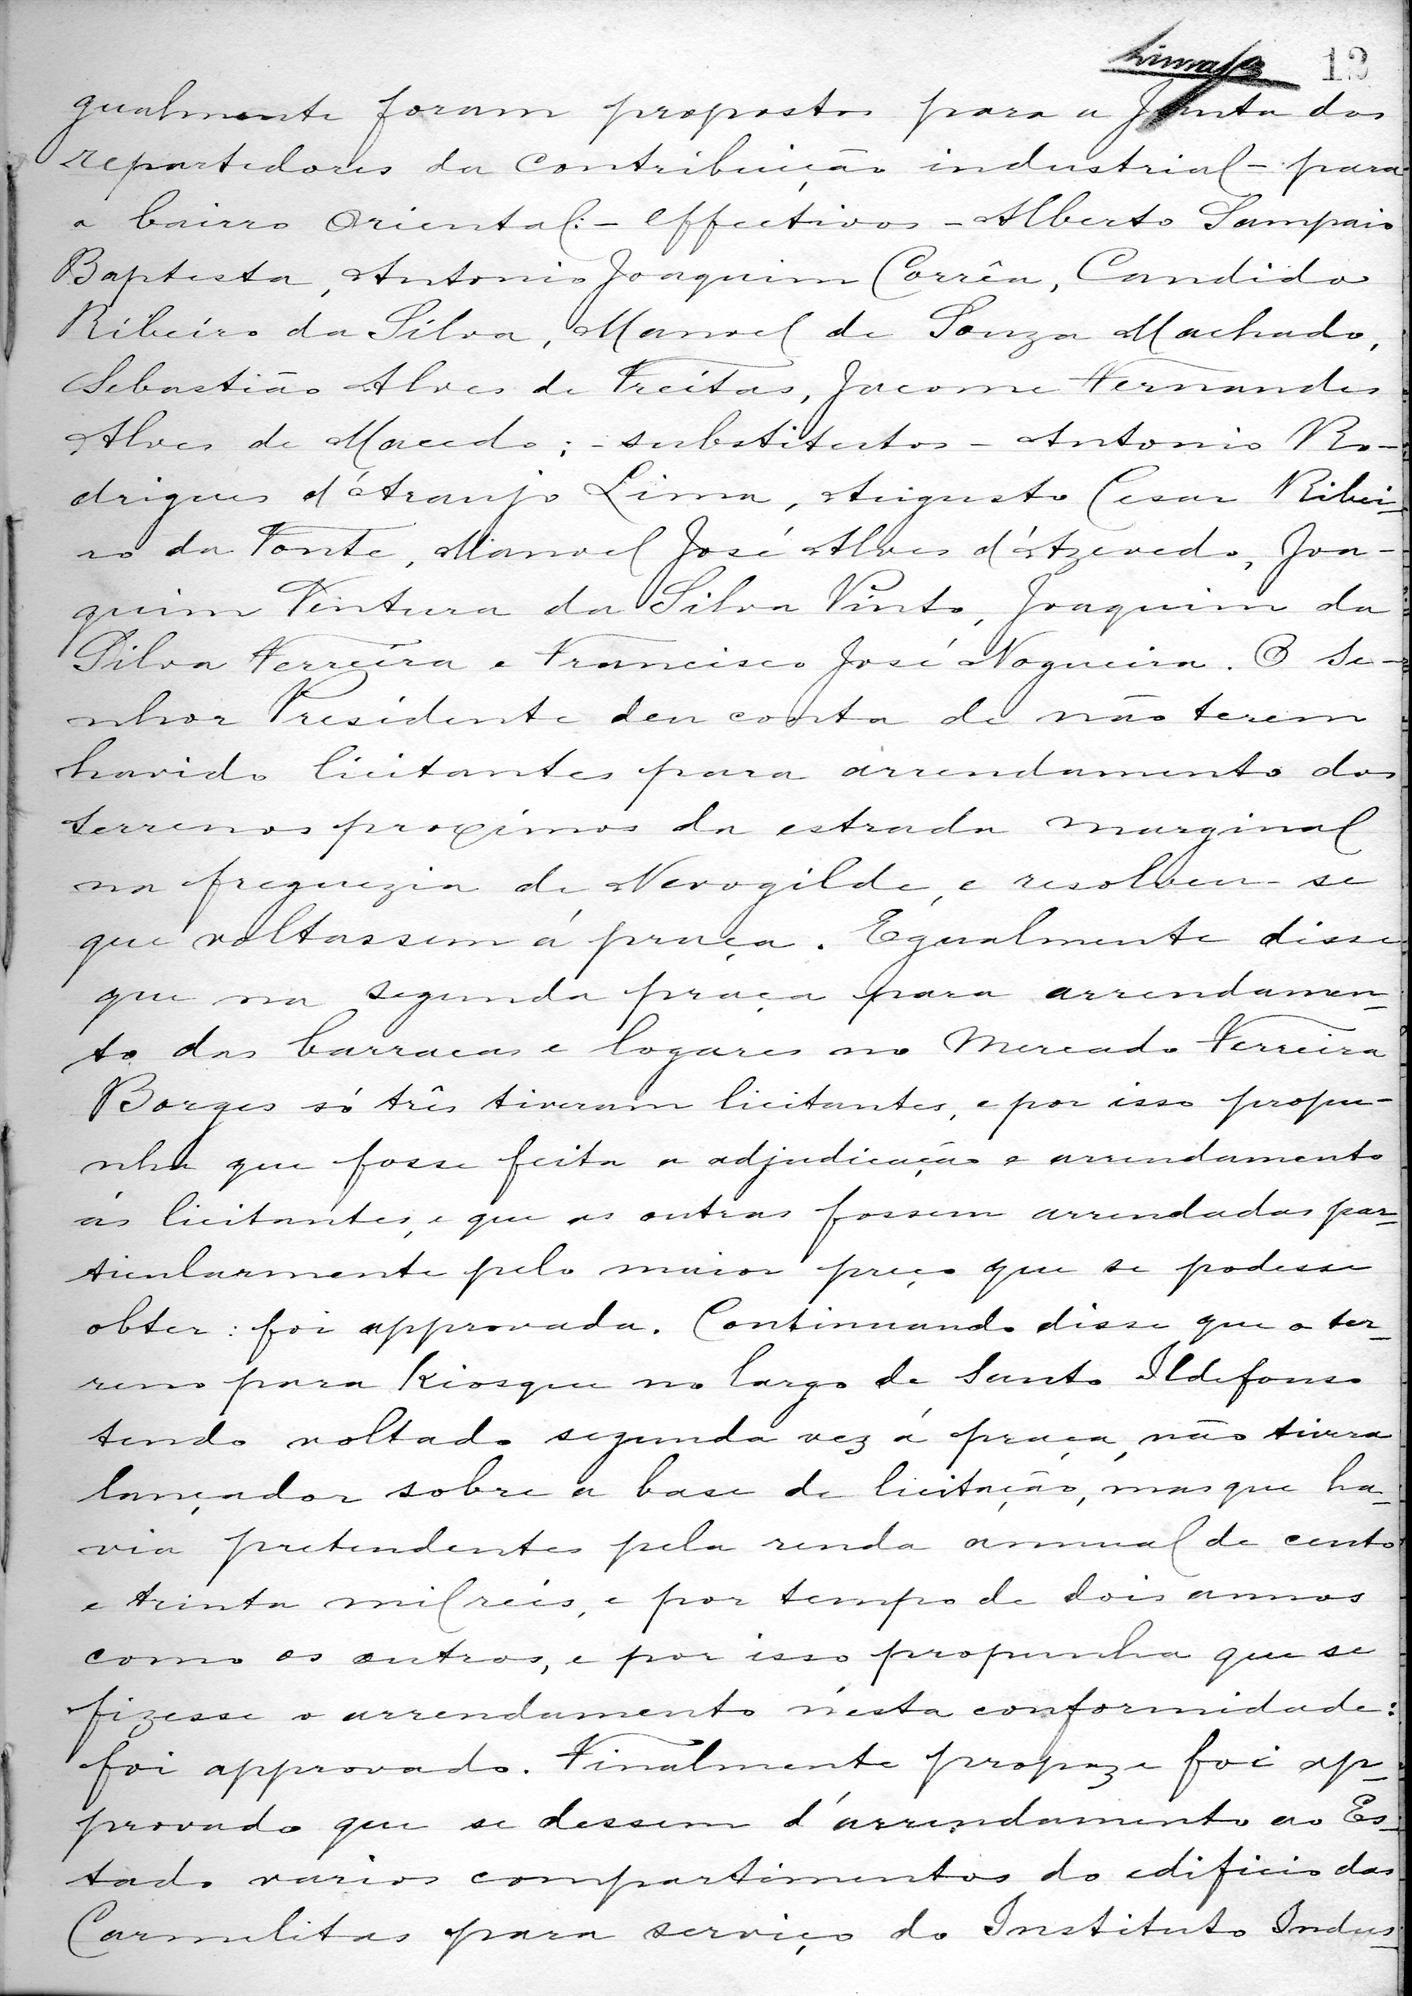 13
gualmente foram propostos para a Junta dos
repartedores da contribuição industrial - para
o bairro Oriental: - effectivos - Alberto Sampaio
Baptista, Antonio Joaquim Corrêa, Candido
Ribeiro da Silva, Manoel de Souza Machado,
Sebastião Alves de Freitas, Jacome Fernandes
Alves de Macedo; - substitutos - Antonio Ro-
drigues d'Araujo Lima, Augusto Cesar Ribei-
ro da Fonte, Manoel José Alves d'Azevedo, Joa-
quim Ventura da Silva Pinto, Joaquim da
Silva Ferreira e Francisco José Nogueira. O Se-
nhor Presidente deu conta de não terem
havido licitantes para arrendamento dos
terrenos proximos da estrada marginal
na freguezia de Nevogilde, e resolveu-se
que voltassem á praça. Egualmente disse
que na segunda praça para arrendamen-
to das barracas e logares no Mercado Ferreira
Borges só três tiveram licitantes, e por isso propu-
nha que fosse feita a adjudicação e arrendamento
ás licitantes, e que as outras fossem arrendadas par-
ticularmente pelo maior preço que se podesse
obter: foi approvada. Continuando disse que o ter-
reno para Kiosque no largo de Santo Ildefonso
tendo voltado segunda vez á praça, não tivera
lançador sobre a base de licitação, mas que ha-
via pretendentes pela renda annual de cento
e trinta mil réis, e por tempo de dois annos
como os outros, e por isso propunha que se
fizesse o arrendamento n'esta conformidade:
foi approvado. Finalmente propoz e foi ap-
provado que se dessem d'arrendamento ao Es-
tado varios compartimentos do edificio das
Carmelitas para serviço do Instituto Indus-